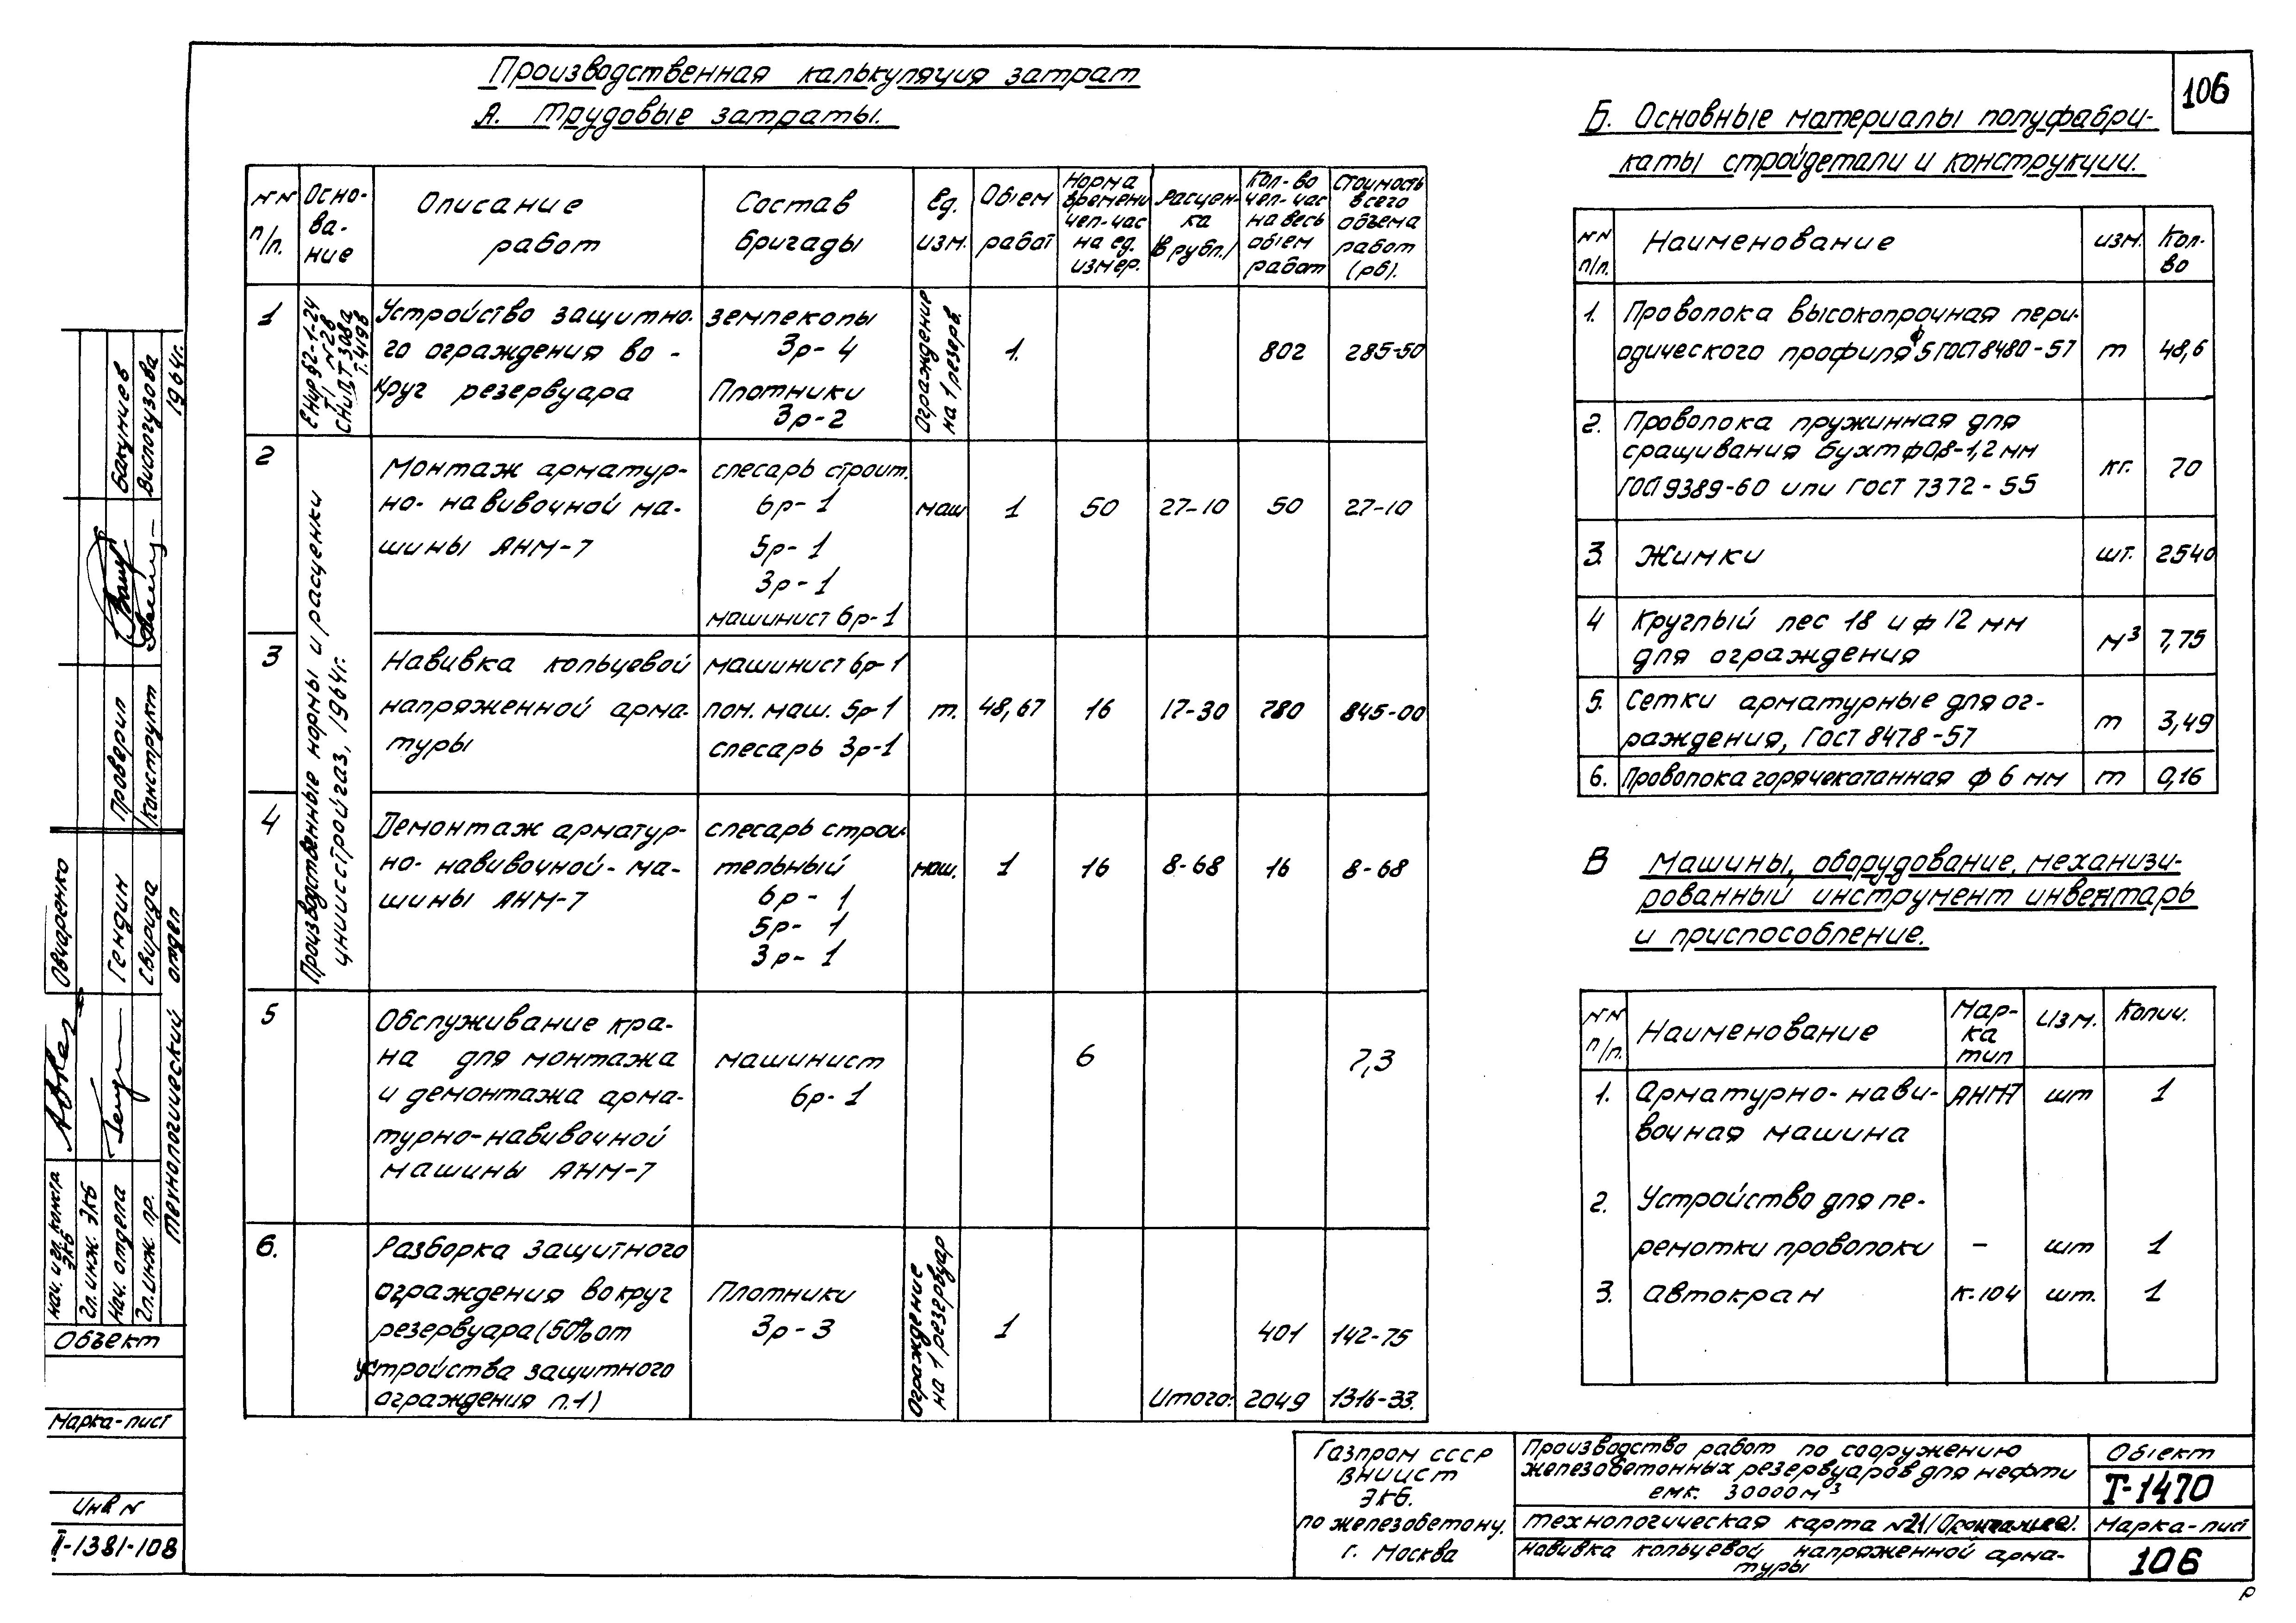 106
Производственная калькуляция затрат
А. Трудовые затраты.
NN п/п.
Осно-ва-ние
Описание работ
Состав бригады
Ед. изм.
Объем работ
Норма времени чел-час на ед. измер.
Расцен-ка (в рубл.)
Кол-во чел-час на весь объем работ
Стоимость всего объема работ (рб).
1
ЕНиР §2-1-24
Т1 N2в
СНиП Т308а
Т.419в
Устройство защитно-
го ограждения во-
круг резервуара
землекопы
3р-4
Плотники
3р-2
Ограждение
на 1 резерв.
1.
802
285-50
Производственные нормы и расценки
цнииссtройгаз, 1964г.
2
Монтаж арматур-
но-навивочной ма-
шины АНМ-7
слесарь строит.
6р-1
5р-1
3р-1
машинист 6р-1
маш
1
50
27-10
50
27-10
3
Навивка кольцевой
напряженной арма-
туры
машинист 6р-1
пом. маш. 5р-1
слесарь 3р-1
т.
48,67
16
17-30
780
845-00
4
Демонтаж арматур-
но-навивочной-ма-
шины АНМ-7
слесарь строи-
тельный
6р-1
5р-1
3р-1
маш.
1
16
8-68
16
8-68
5
Обслуживание кра-
на для монтажа
и демонтажа арма-
турно-навивочной
машины АНМ-7
машинист
6р-1
6
7,3
6.
Разборка защитного
ограждения вокруг
резервуара (50% от
устройства защитного
ограждения п.1)
Плотники
3р-3
Ограждение
на 1 резервуар
1
401
142-75
Итого:
2049
1316-33.
Б. Основные материалы полуфабри-
каты стройдетали и конструкции.
NN п/п.
Наименование
изм.
Кол-во
1.
Проволока высокопрочная пери-
одического профиля ф5 ГОСТ 8480-57
т
48,6
2.
Проволока пружинная для
сращивания бухт ф 0,8-1,2 мм
ГОСТ 9389-60 или ГОСТ 7372-55
кг.
70
3.
Жимки
шт.
2540
4
Круглый лес 18 и ф 12 мм
для ограждения
м³
7,75
5.
Сетки арматурные для ог-
раждения, ГОСТ 8478-57
т
3,49
6.
Проволока горячекатанная ф 6 мм
т
0,16
В Машины, оборудование, механизи-
рованный инструмент инвентарь
и приспособление.
NN п/п.
Наименование
Мар-ка тип
Изм.
Колич.
1.
Арматурно-нави-
вочная машина
АНМ7
шт
1
2.
Устройство для пе-
ремотки проволоки
-
шт
1
3.
Автокран
К-104
шт.
1
Газпром СССР
ВНИИСТ
ЭКБ.
по железобетону.
г. Москва
Производство работ по сооружению
железобетонных резервуаров для нефти
емк. 30000м³
Технологическая карта N21 (Продолжение).
Навивка кольцевой напряженной арма-
туры
Объект
Т-1470
Марка-лист
106
Р
Нач. и гл. констр. ЭКБ
Овчаренко
Гл. инж. ЭКБ
Нач. отдела
Гендин
Гл. инж. пр.
Свирида
Технологический отдел
Проверил
Бакумцев
Конструкт
Вислогузова
1964г.
Объект
Марка-лист
Инв N
I-1381-108